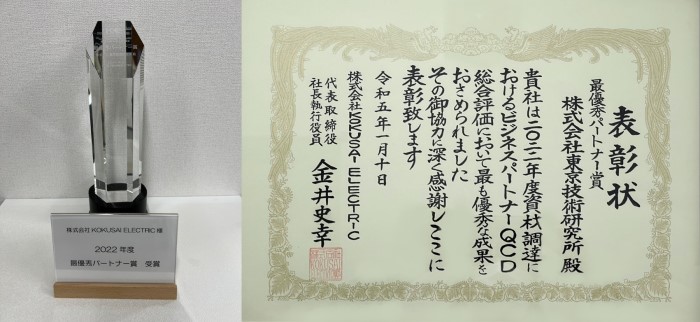 株式会社 KOKUSAI ELECTRIC 様
2022 年度
最優秀パートナー賞 受賞
表彰状
最優秀パートナー賞
株式会社東京技術研究所 殿
貴社は二〇二二年度資材調達に
おけるビジネスパートナーQCD
総合評価において最も優秀な成果を
おさめられました
その御協力に深く感謝しここに
表彰致します
令和五年一月十日
株式会社KOKUSAI ELECTRIC
代表取締役
社長執行役員
金井史幸